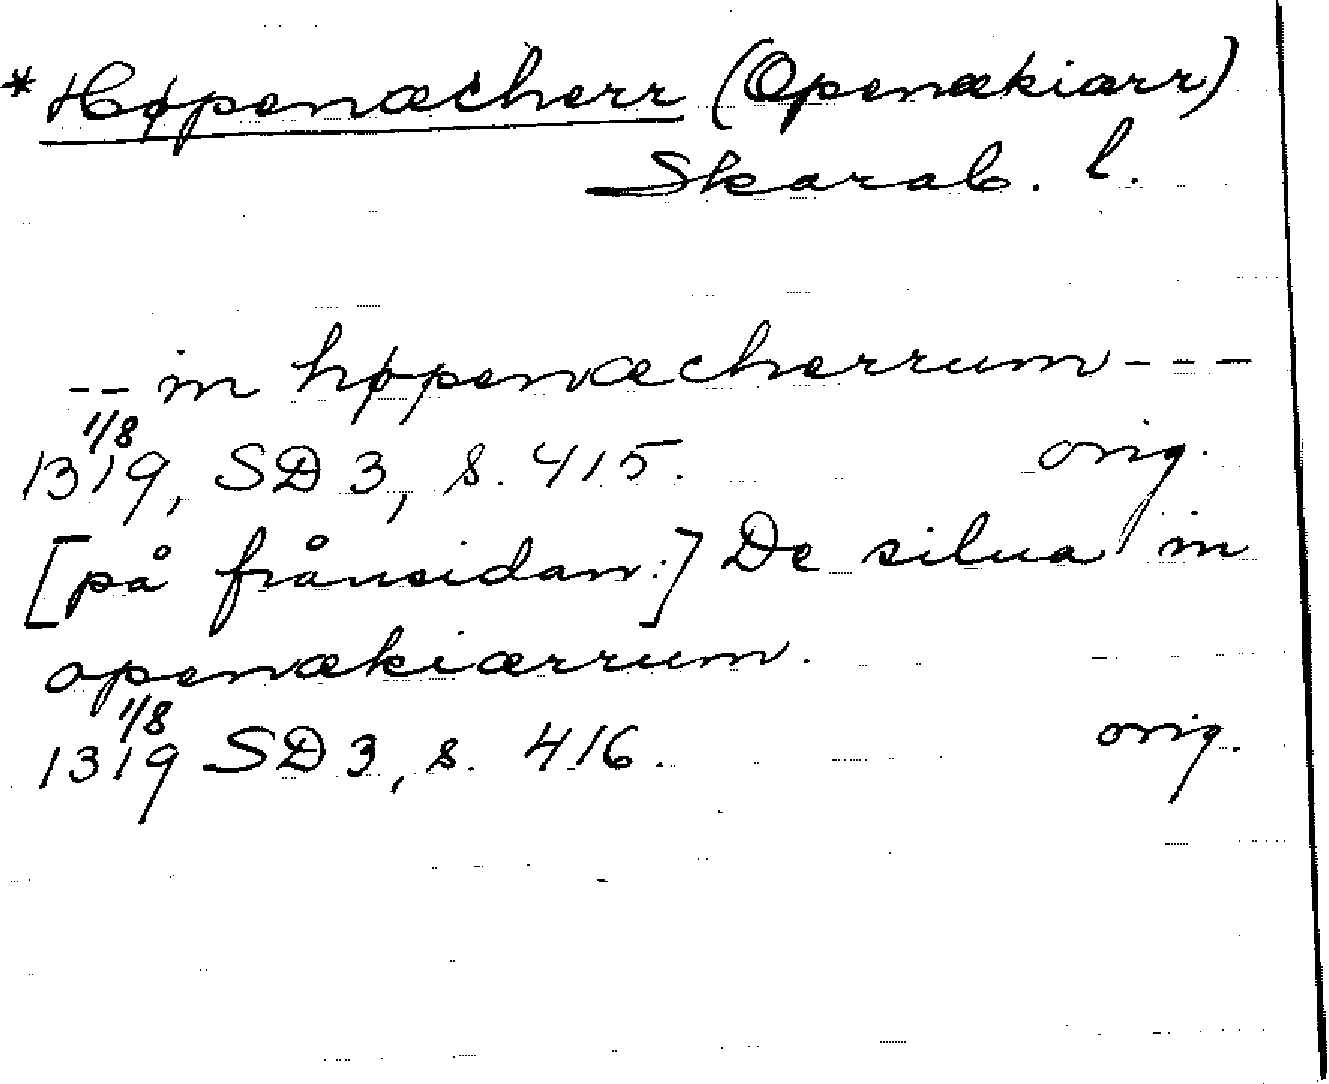 * Høpenæcherr (Openækiærr)
Skarab. l.
-- in høpenæcherrum ---
1/8
1319, SD 3, s. 415. orig.
[på frånsidan:] De silua in
openækiærrum.
1/8
1319 SD 3, s. 416. orig.